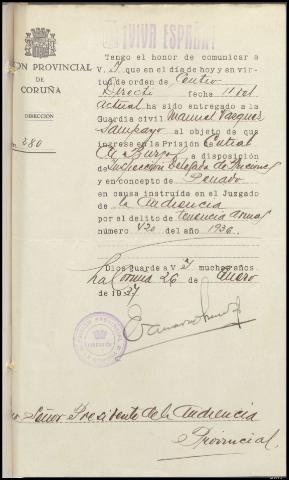 ¡VIVA ESPAÑA!
ON PROVINCIAL
DE
CORUÑA
DIRECCIÓN
380
Tengo el honor de comunicar a
V. I que en el día de hoy y en vir-
tud de orden de Centro
Directi fecha 11 del
actual ha sido entregado a la
Guardia civil Manuel Vazquez
Sampayo al objeto de que
ingrese en la Prisión Central
de Burgos a disposición
de Inspección Delegada de Prisiones
y en concepto de Penado
en causa instruída en el Juzgado
de la Audiencia
por el delito de tenencia armas
número 420 del año 1936.
Dios guarde a V. I muchos años.
La Coruña 26 de Enero
de 1937
Señor Presidente de la Audiencia
Provincial.